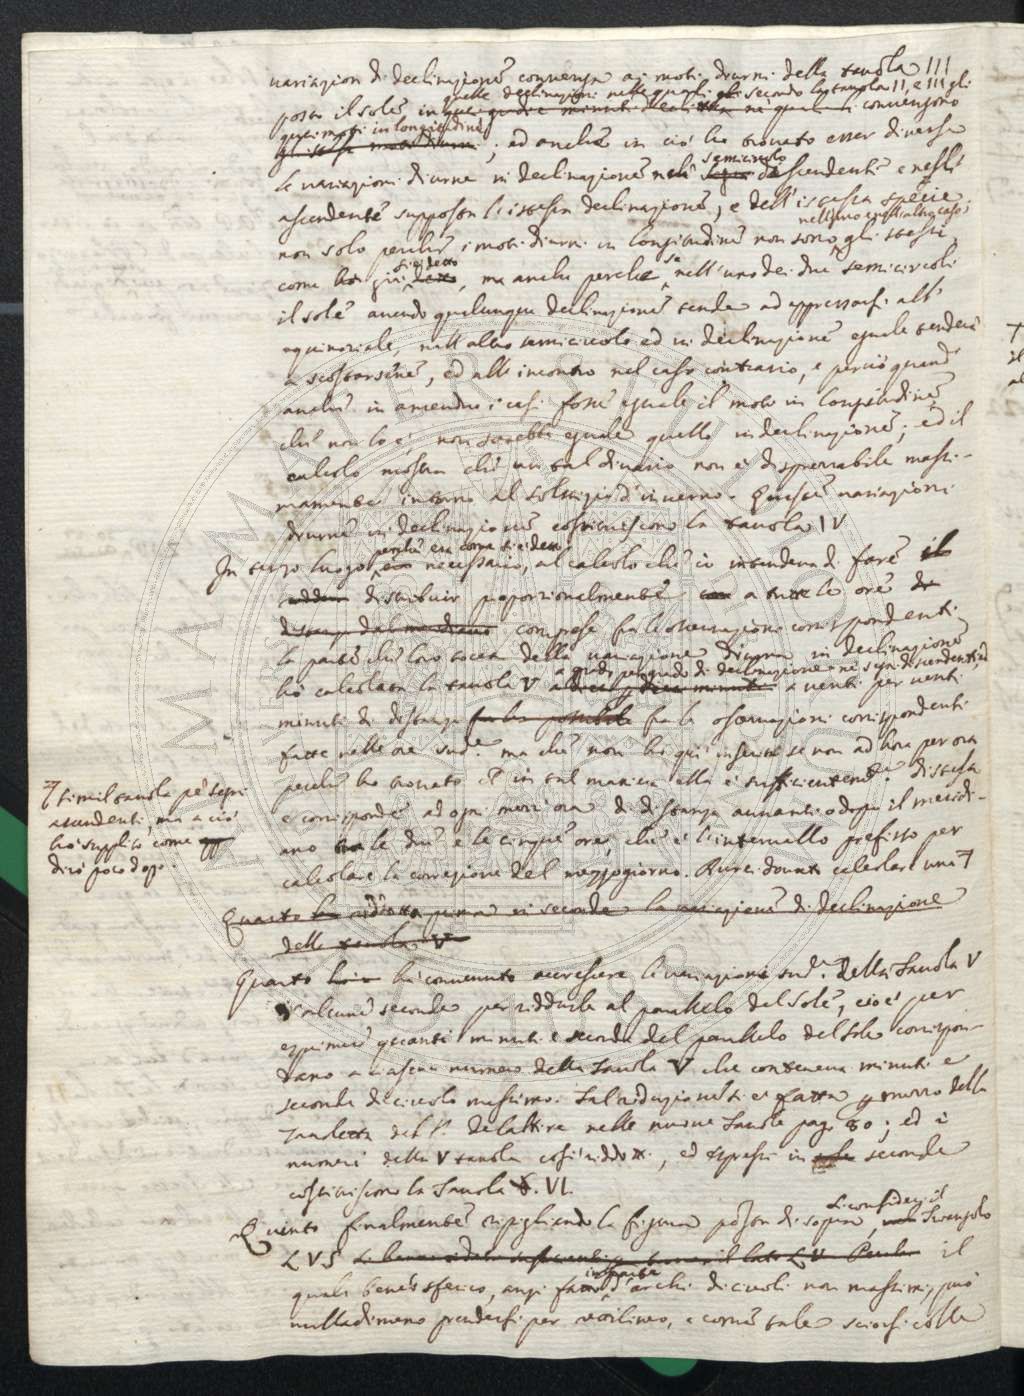 variazion di declinazione convenga ai moti diurni della tavola III
posto il sole in quelle declinazioni nelle quali gli secondo la tavola II, e III gli
quei gradi e minuti ne' quali convengono
quei moti in longitudine
; ed anche in ciò ho trovato esser diverse
le variazioni diurne in declinazione nel semicircolo discendente e nell'
ascendente supposta l'istessa declinazione, e dell'istessa specie
non solo perché i moti diurni in longitudine non sono nell'uno e nell'altro caso gli stessi,
come già si è detto, ma anche perché se nell'uno dei due semicircoli
il sole avendo qualunque declinazione tende ad appressarsi all'
equinoziale, nell'altro semicircolo ed in declinazione eguale tenderà
a scostarsene, ed all'incontro nel caso contrario, e perciò quand'
anche in amendue i casi fosse eguale il moto in longitudine
che non lo è, non sarebbe eguale quello in declinazione; ed il
calcolo mostra che un tal divario non è disprezzabile massi-
mamente intorno al solstizio d'inverno. Queste variazioni
diurne in declinazione costituiscono la tavola IV
In terzo luogo perché era come si è detto necessario, al calcolo che io intendeva di fare il
distribuir proporzionalmente a tutte le ore di
distanza dal meridiano comprese fra le osservazioni corrispondenti
la parte che loro tocca della variazione diurna in declinazione
ho calcolata la tavola V a grado per grado di declinazione ne' segni discendenti, ed
a venti per venti
minuti di distanza fra le osservazioni corrispondenti
fatte nelle ore sud.e ma che non ho qui inserita se non ad hora per ora
perché ho trovato che in tal maniera ella è sufficientem.te distesa
e corrisponde ad ogni mezz'ora di distanza avvanti o dopo il meridi-
ano tra le due e le cinque ore, che è l'intervallo prefisso per
calcolare la correzione del mezzogiorno. Avrei dovuto calcolare una
simil tavola pe' segni
ascendenti, ma a ciò
ho supplito come
dirò poco dopo.
Quarto ho ridotta prima in seconde la variazione di declinazione
della tavola V
Quarto ho convenuto accrescere le variazioni sud.e della Tavola V
d'alcune seconde per ridurle al parallelo del Sole, cioè per
esprimere quanti minuti e secondi del parallelo del Sole corrispon-
dano a ciascun numero della Tavola V che conteneva minuti e
secondi di circolo massimo. Tal riduzione si è fatta per mezzo della
Tavoletta del P. De la Hire nelle nuove Tavole pag. 80; ed i
numeri della V tavola così ridotti, ed espressi in seconde
costituiscono la Tavola VI.
Quinto finalmente ripigliando la figura posta di sopra, si consideri il triangolo
LVS il
quale benché sferico, anzi fatto in parte d'archi di circoli non massimi, può
nulladimeno prendersi per rettilineo, e come tale sciorsi colle